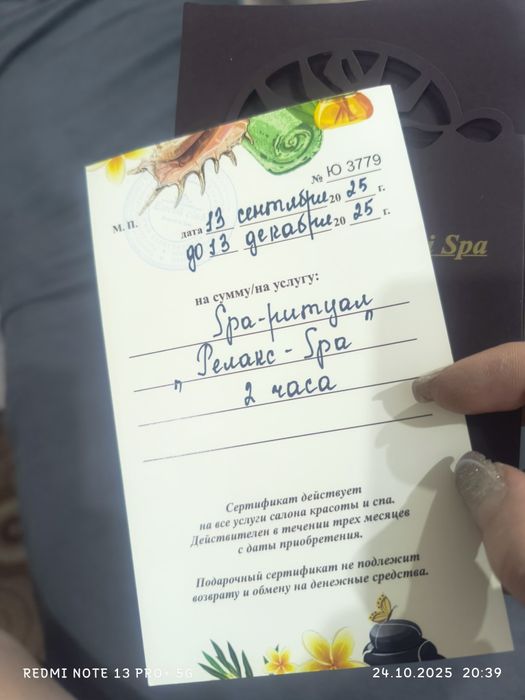 № Ю 3779
М. П.
дата 13 сентября 20 25 г.
до 13 декабря 20 25 г.
i Spa
на сумму/на услугу:
Spa-ритуал
"Релакс-Spa"
2 часа
Сертификат действует
на все услуги салона красоты и спа.
Действителен в течении трех месяцев
с даты приобретения.
Подарочный сертификат не подлежит
возврату и обмену на денежные средства.
REDMI NOTE 13 PRO+ 5G
24.10.2025 20:39